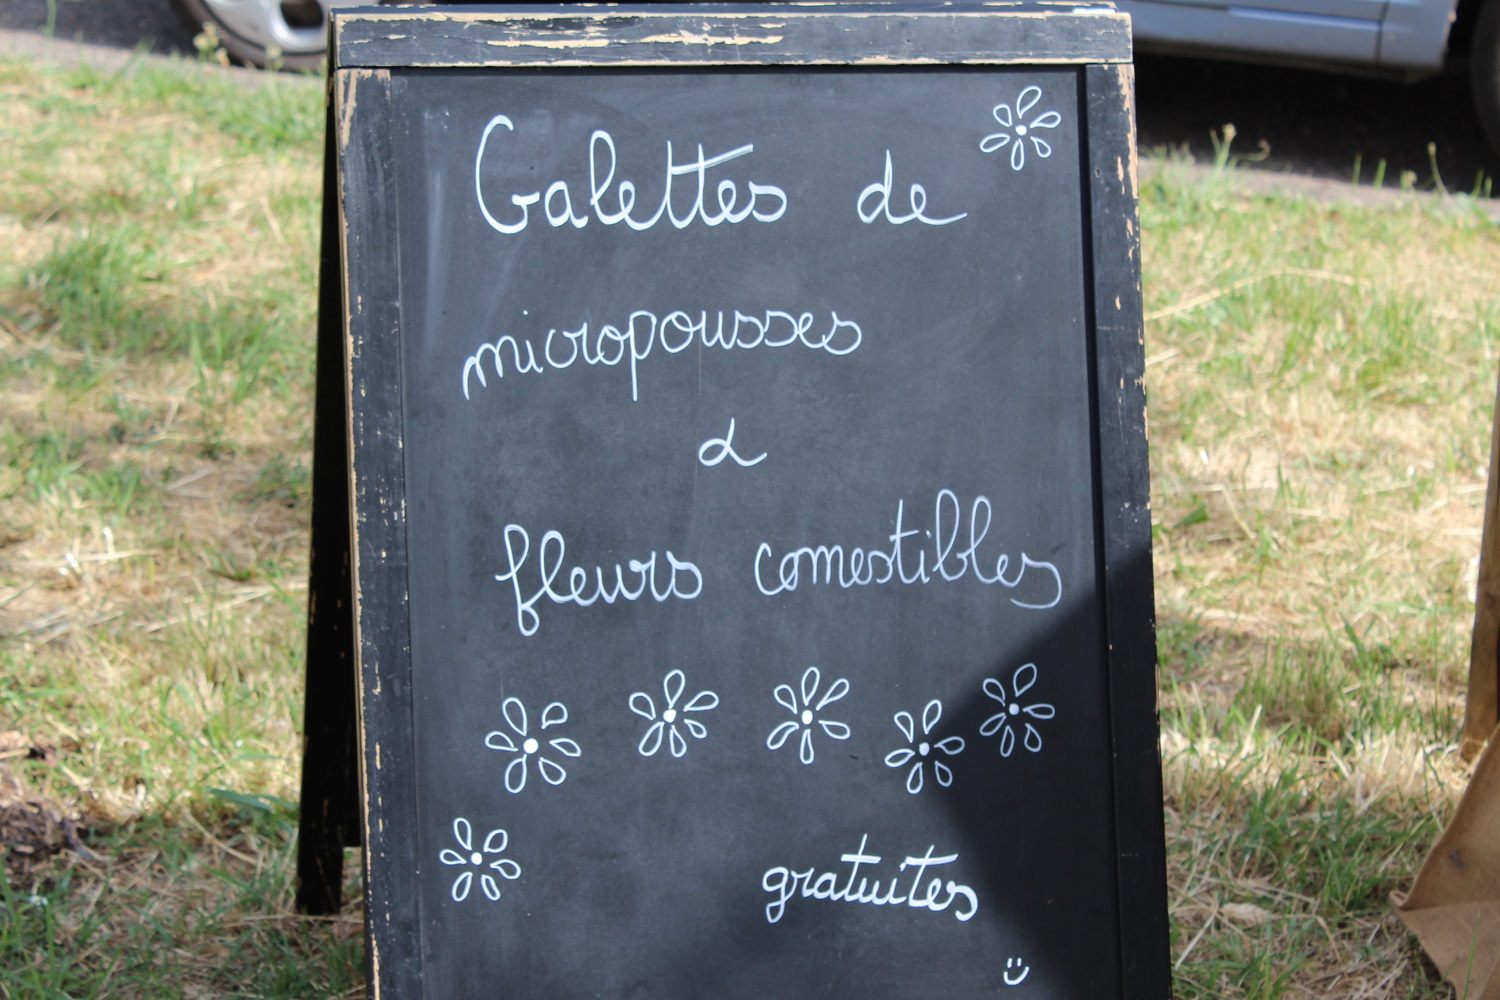 Galettes de
micropousses
&
fleurs comestibles
gratuites